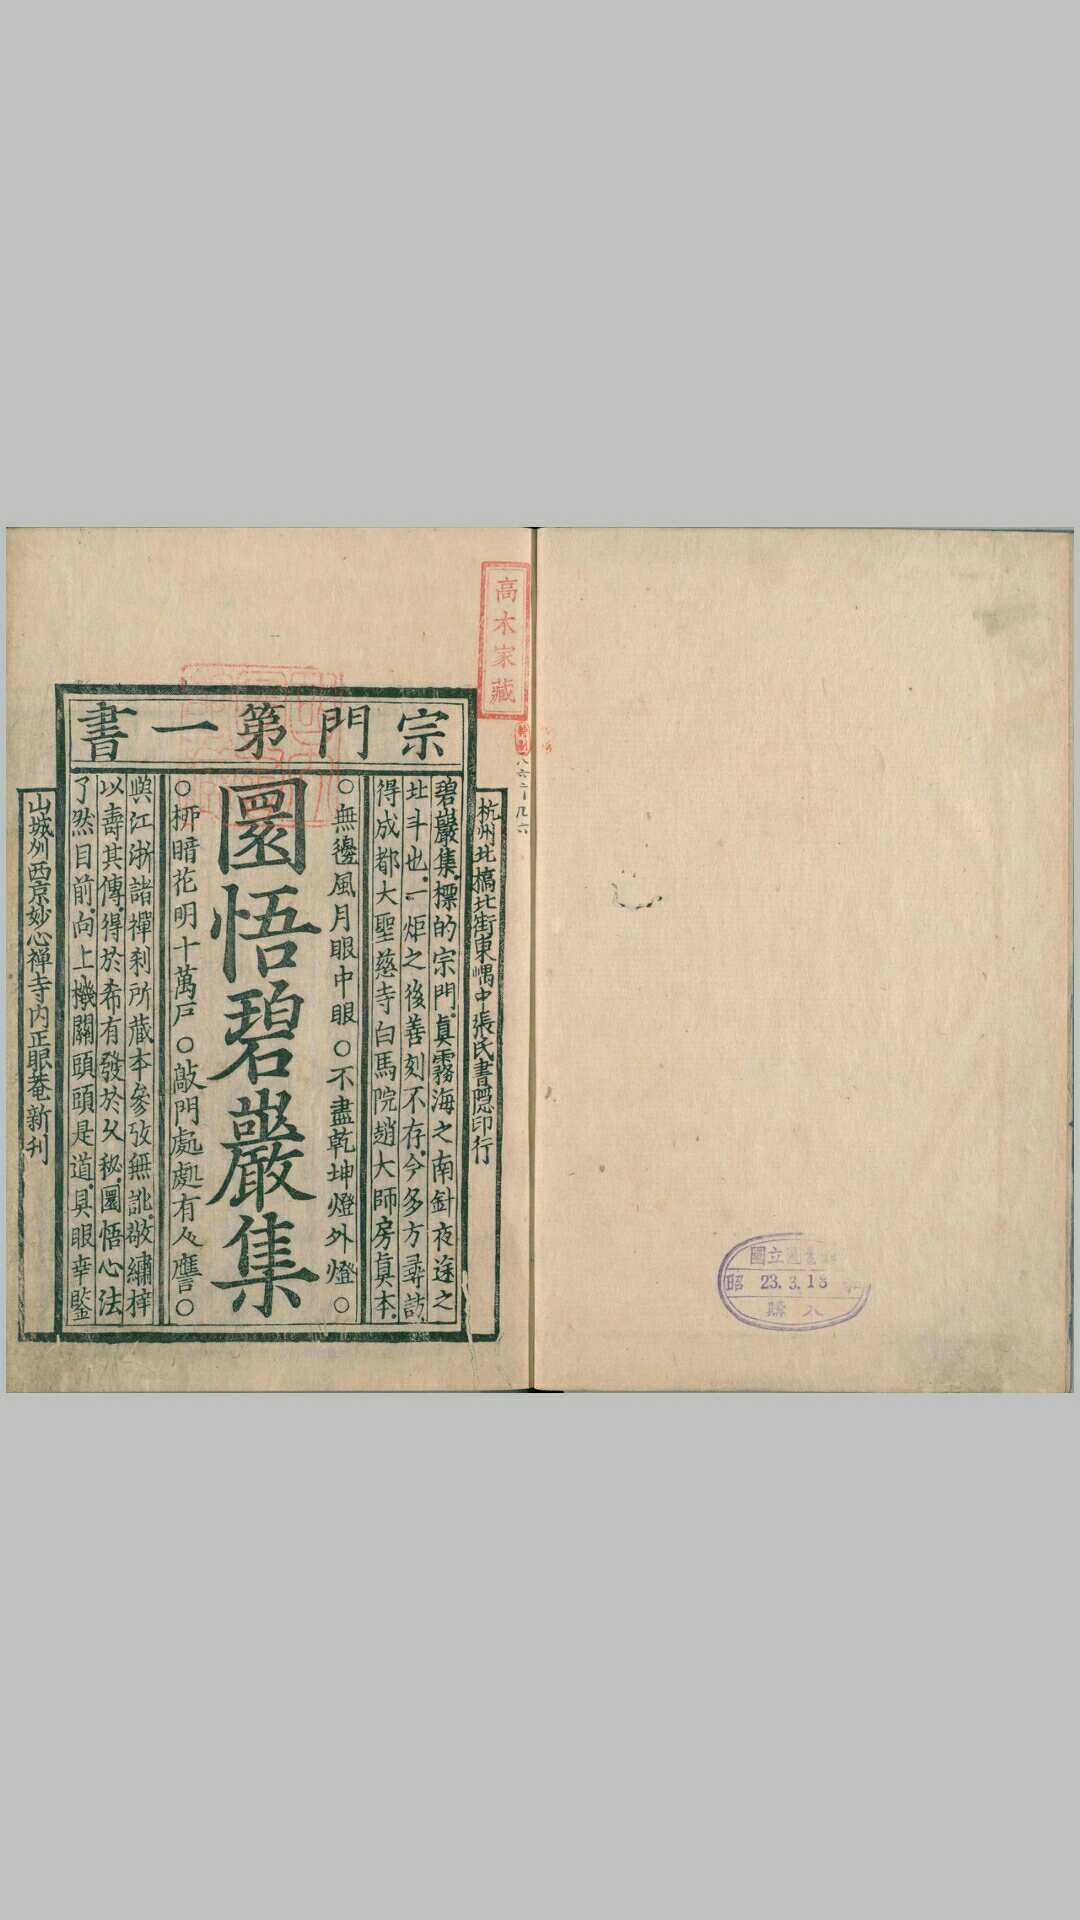 宗門第一書
杭州北橋北街東嵎中張氏書隱印行
碧巖集標的宗門眞霧海之南針夜途之
北斗也一炬之後善刻不存今多方尋訪
得成都大聖慈寺白馬院趙大師房眞本
○無邊風月眼中眼○不盡乾坤燈外燈○
圜悟碧巖集
○栁暗花明十萬戸○敲門處處有人譍○
與江浙諸禪刹所藏本參攷無訛敬繡梓
以壽其傳得於希有發於久秘圜悟心法
了然目前向上機關頭頭是道具眼幸鑒
山城州西京妙心禅寺内正眼菴新刊
高木家藏
國立圖書
昭 23.3.18
購入